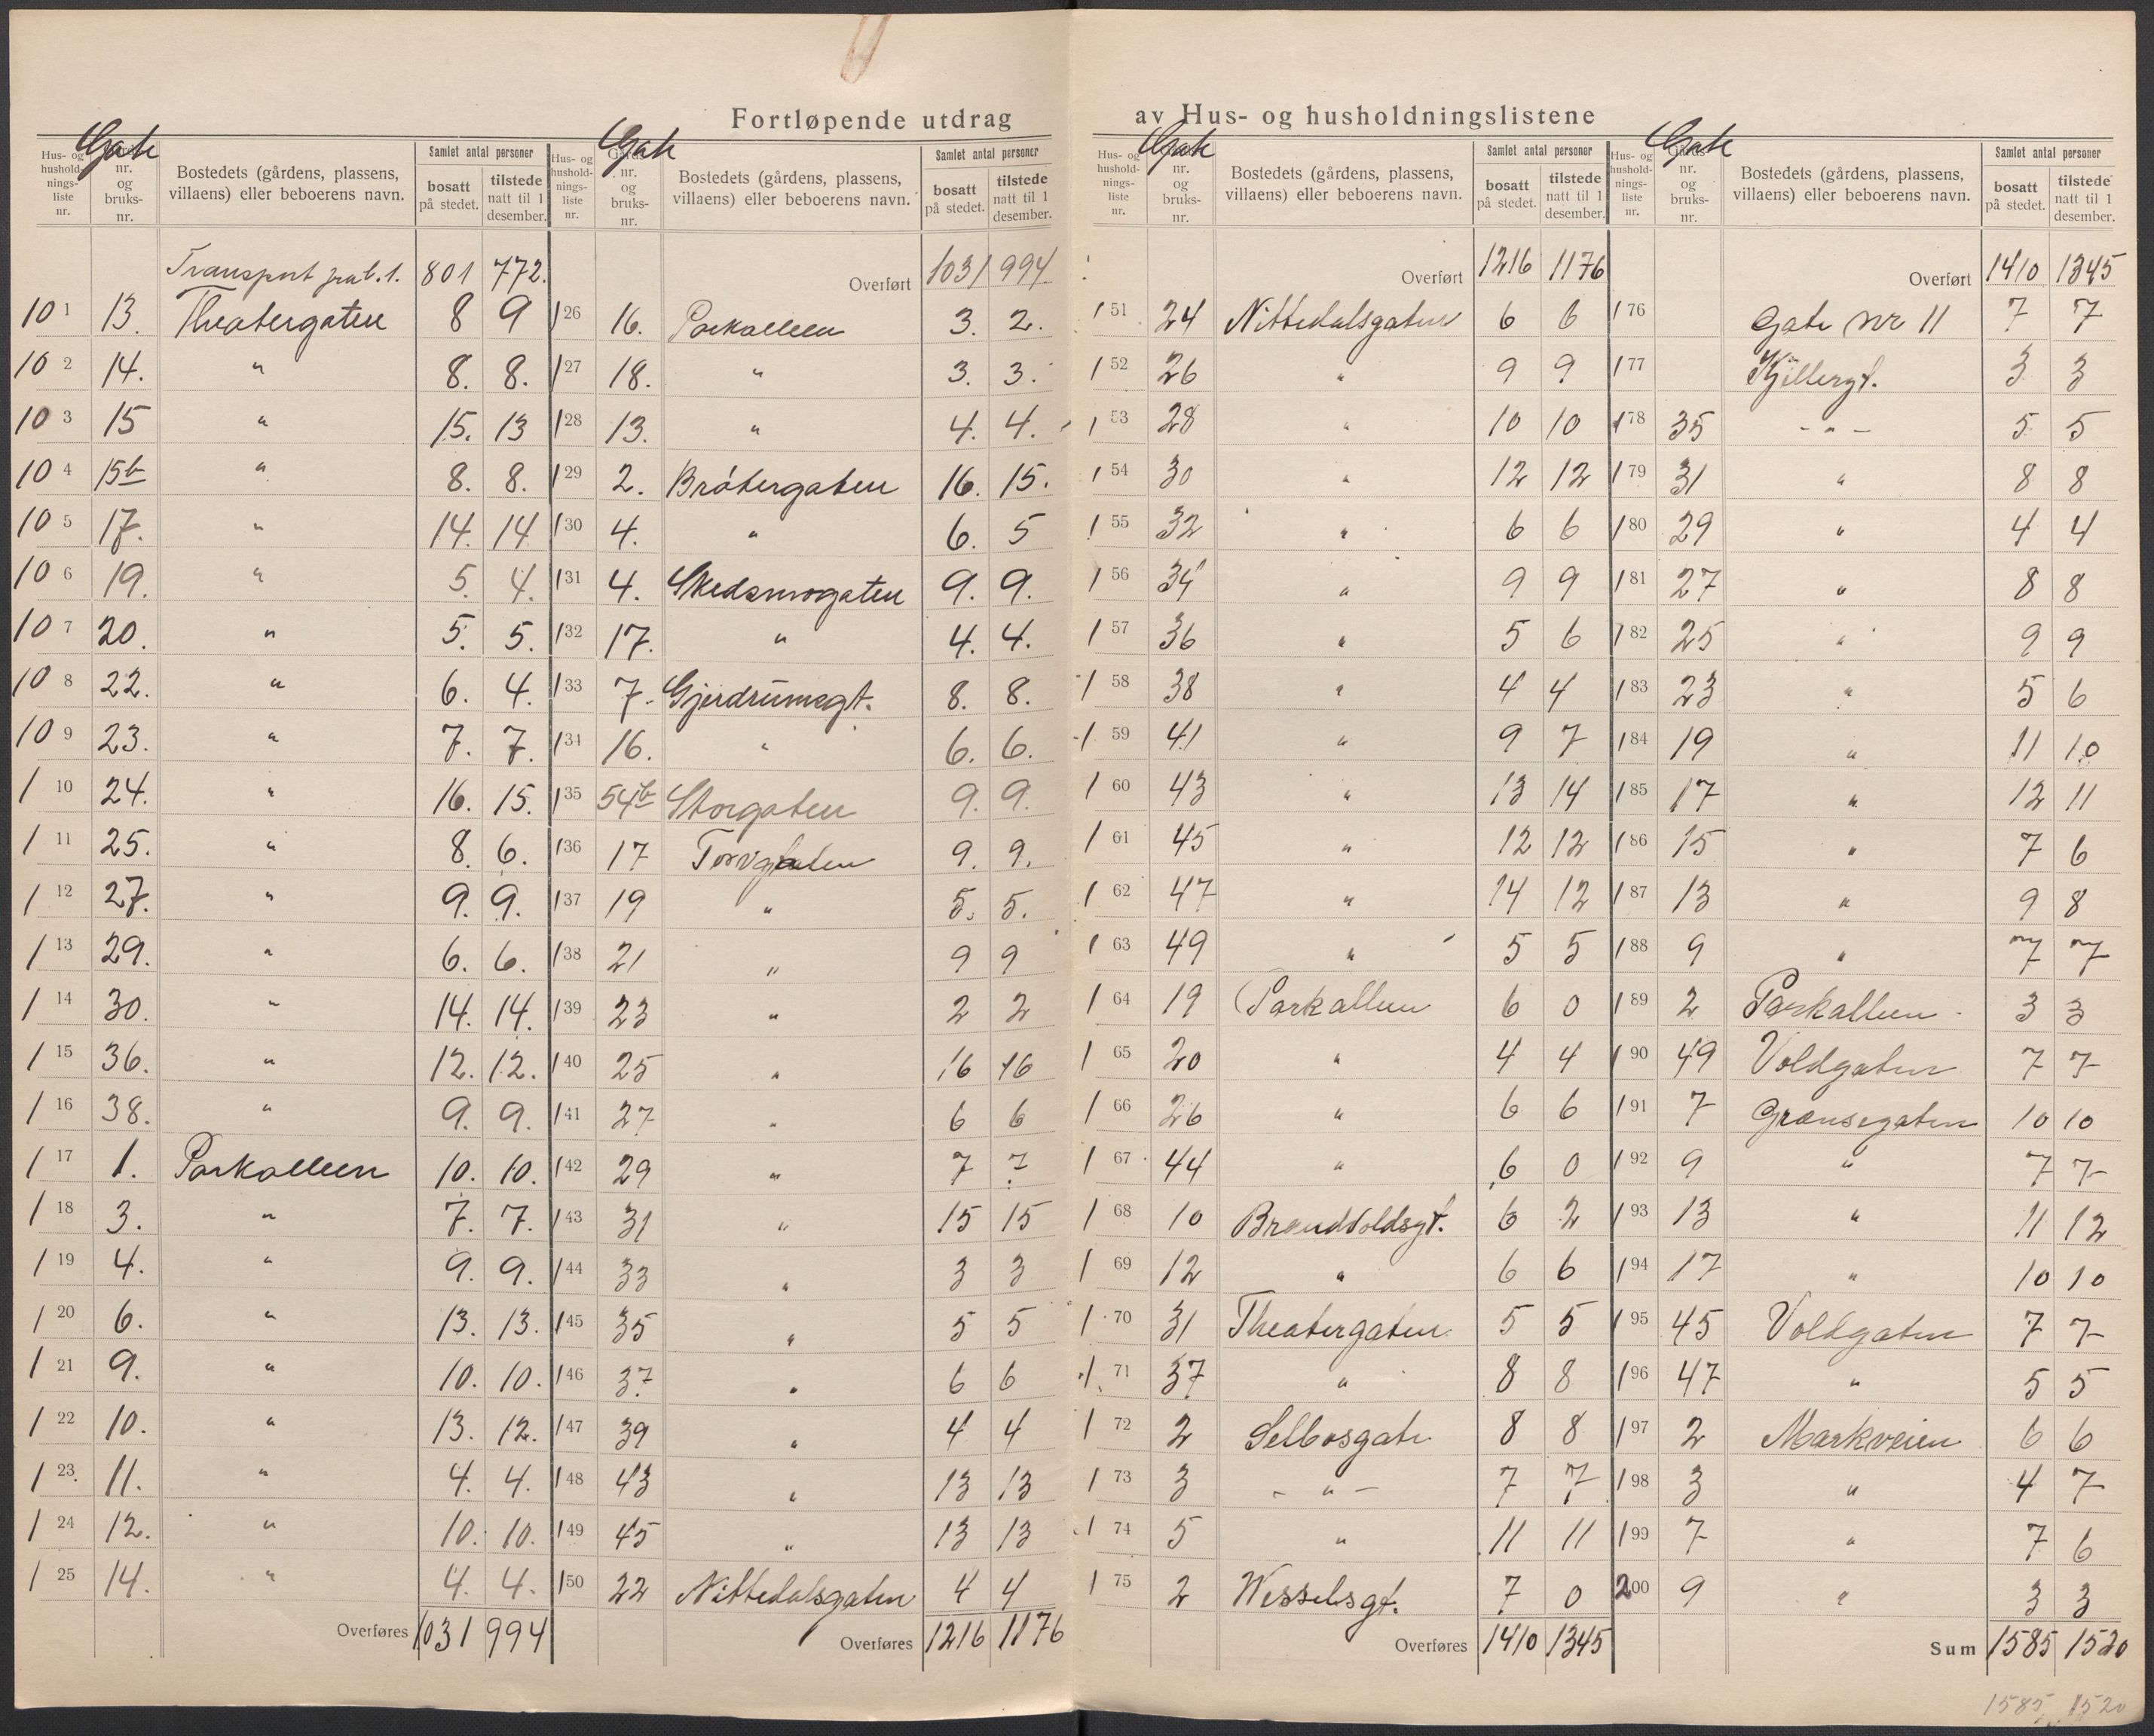 Fortløpende utdrag av Hus- og husholdningslistene
Hus- og hushold-nings-liste nr. Gate nr. og bruks-nr. Bostedets (gårdens, plassens, villaens) eller beboerens navn. Samlet antal personer bosatt på stedet. tilstede natt til 1 desember.
Transport 801 772.
101 13. Theatergaten 8 9
102 14. " 8. 8.
103 15 " 15. 13
104 15b " 8. 8.
105 17. " 14. 14
106 19. " 5. 4.
107 20. " 5. 5.
108 22. " 6. 4.
109 23. " 7. 7.
110 24. " 16. 15.
111 25. " 8. 6.
112 27. " 9. 9.
113 29. " 6. 6.
114 30. " 14. 14.
115 36. " 12. 12.
116 38. " 9. 9.
117 1. Parkalleen 10. 10.
118 3. " 7. 7.
119 4. " 9. 9.
120 6. " 13. 13.
121 9. " 10. 10.
122 10. " 13. 12.
123. 11. " 4. 4.
124 12. " 10. 10.
125 14. " 4. 4.
Overføres 1031 994
Hus- og hushold-nings-liste nr. Gate nr. og bruks-nr. Bostedets (gårdens, plassens, villaens) eller beboerens navn. Samlet antal personer bosatt på stedet. tilstede natt til 1 desember.
Overført 1031 994.
126 16. Parkalleen 3. 2.
127 18. " 3. 3.
128 13. " 4. 4.
129 2. Bråtergaten 16. 15.
130 4. " 6. 5
131 4. Skedsmogaten 9. 9.
132 17. " 4. 4.
133 7. Gjerdrumsgt. 8. 8.
134 16. " 6. 6.
135 54b Storgaten 9. 9.
136 17 Torvgaten 9. 9.
137 19 " 5. 5.
138 21 " 9 9
139 23 " 2 2
140 25 " 16 16
141 27 " 6 6
142 29 " 7 7
143 31 " 15 15
144 33 " 3 3
145 35 " 5 5
146 37 " 6 6
147 39 " 4 4
148 43 " 13 13
149 45 " 13 13
150 22 Nittedalsgaten 4 4
Overføres 1216 1176
Hus- og hushold-nings-liste nr. Gate nr. og bruks-nr. Bostedets (gårdens, plassens, villaens) eller beboerens navn. Samlet antal personer bosatt på stedet. tilstede natt til 1 desember.
Overført 1216 1176
151 24 Nittedalsgaten 6 6
152 26 " 9 9
153 28 " 10 10
154 30 " 12 12
155 32 " 6 6
156 34 " 9 9
157 36 " 5 6
158 38 " 4 4
159 41 " 9 7
160 43 " 13 14
161 45 " 12 12
162 47 " 14 12
163 49 " 5 5
164 19 Parkalleen 6 0
165 20 " 4 4
166 26 " 6 6
167 44 " 6 0
168 10 Brandvoldsgt. 6 2
169 12 " 6 6
170 31 Theatergaten 5 5
171 37 " 8 8
172 2 Selbosgate 8 8
173 3 - " - 7 7
174 5 " 11 11
175 2 Wesselsgt. 7 0
Overføres 1410 1345
Hus- og hushold-nings-liste nr. Gate nr. og bruks-nr. Bostedets (gårdens, plassens, villaens) eller beboerens navn. Samlet antal personer bosatt på stedet. tilstede natt til 1 desember.
Overført 1410 1345
176 Gate nr 11 7 7
177 Kjellergt. 3 3
178 35 - " - 5 5
179 31 " 8 8
180 29 " 4 4
181 27 " 8 8
182 25 " 9 9
183 23 " 5 6
184 19 " 11 10
185 17 " 12 11
186 15 " 7 6
187 13 " 9 8
188 9 " 7 7
189 2 Parkalleen 3 3
190 49 Voldgaten 7 7
191 7 Grænsegaten 10 10
192 9 " 7 7
193 13 " 11 12
194 17 " 10 10
195 45 Voldgaten 7 7
196 47 " 5 5
197 2 Markveien 6 6
198 3 " 4 7
199 7 " 7 6
200 9 " 3 3
Sum 1585 1520
1585 1520